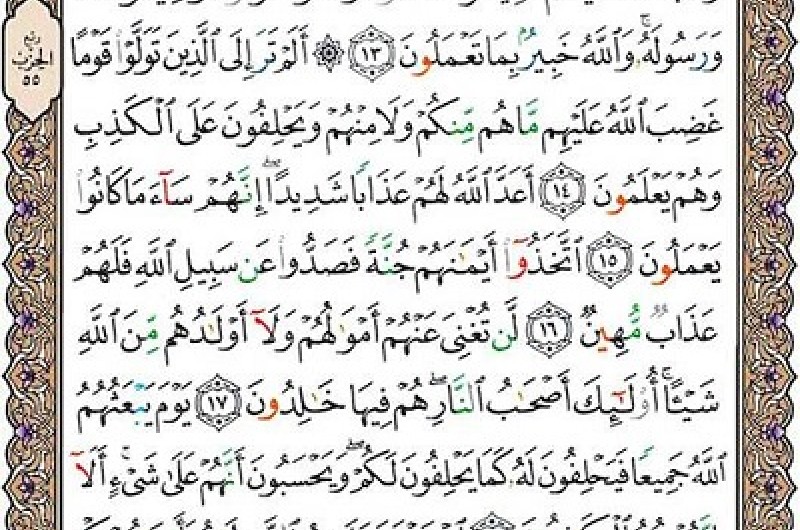 وَرَسُولَهُۥۚ وَٱللَّهُ خَبِيرُۢ بِمَا تَعْمَلُونَ ١٣ ۞ أَلَمْ تَرَ إِلَى ٱلَّذِينَ تَوَلَّوْا۟ قَوْمًا
ربع
الحزب
٥٥
غَضِبَ ٱللَّهُ عَلَيْهِم مَّا هُم مِّنكُمْ وَلَا مِنْهُمْ وَيَحْلِفُونَ عَلَى ٱلْكَذِبِ
وَهُمْ يَعْلَمُونَ ١٤ أَعَدَّ ٱللَّهُ لَهُمْ عَذَابًا شَدِيدًاۖ إِنَّهُمْ سَآءَ مَا كَانُوا۟
يَعْمَلُونَ ١٥ ٱتَّخَذُوٓا۟ أَيْمَٰنَهُمْ جُنَّةً فَصَدُّوا۟ عَن سَبِيلِ ٱللَّهِ فَلَهُمْ
عَذَابٌ مُّهِينٌ ١٦ لَّن تُغْنِىَ عَنْهُمْ أَمْوَٰلُهُمْ وَلَآ أَوْلَٰدُهُم مِّنَ ٱللَّهِ
شَيْـًٔاۚ أُو۟لَٰٓئِكَ أَصْحَٰبُ ٱلنَّارِۖ هُمْ فِيهَا خَٰلِدُونَ ١٧ يَوْمَ يَبْعَثُهُمُ
ٱللَّهُ جَمِيعًا فَيَحْلِفُونَ لَهُۥ كَمَا يَحْلِفُونَ لَكُمْۖ وَيَحْسَبُونَ أَنَّهُمْ عَلَىٰ شَىْءٍۚ أَلَآ